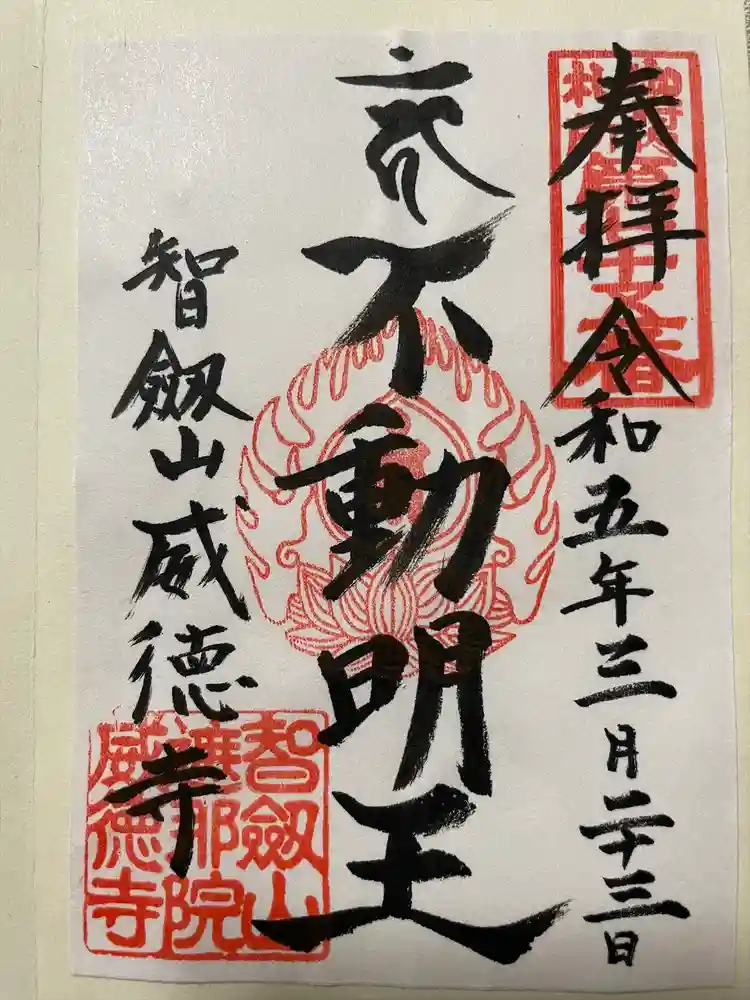 奉拝
令和五年三月二十三日
不動明王
智劔山威徳寺
智劔山
遮那院
威徳寺